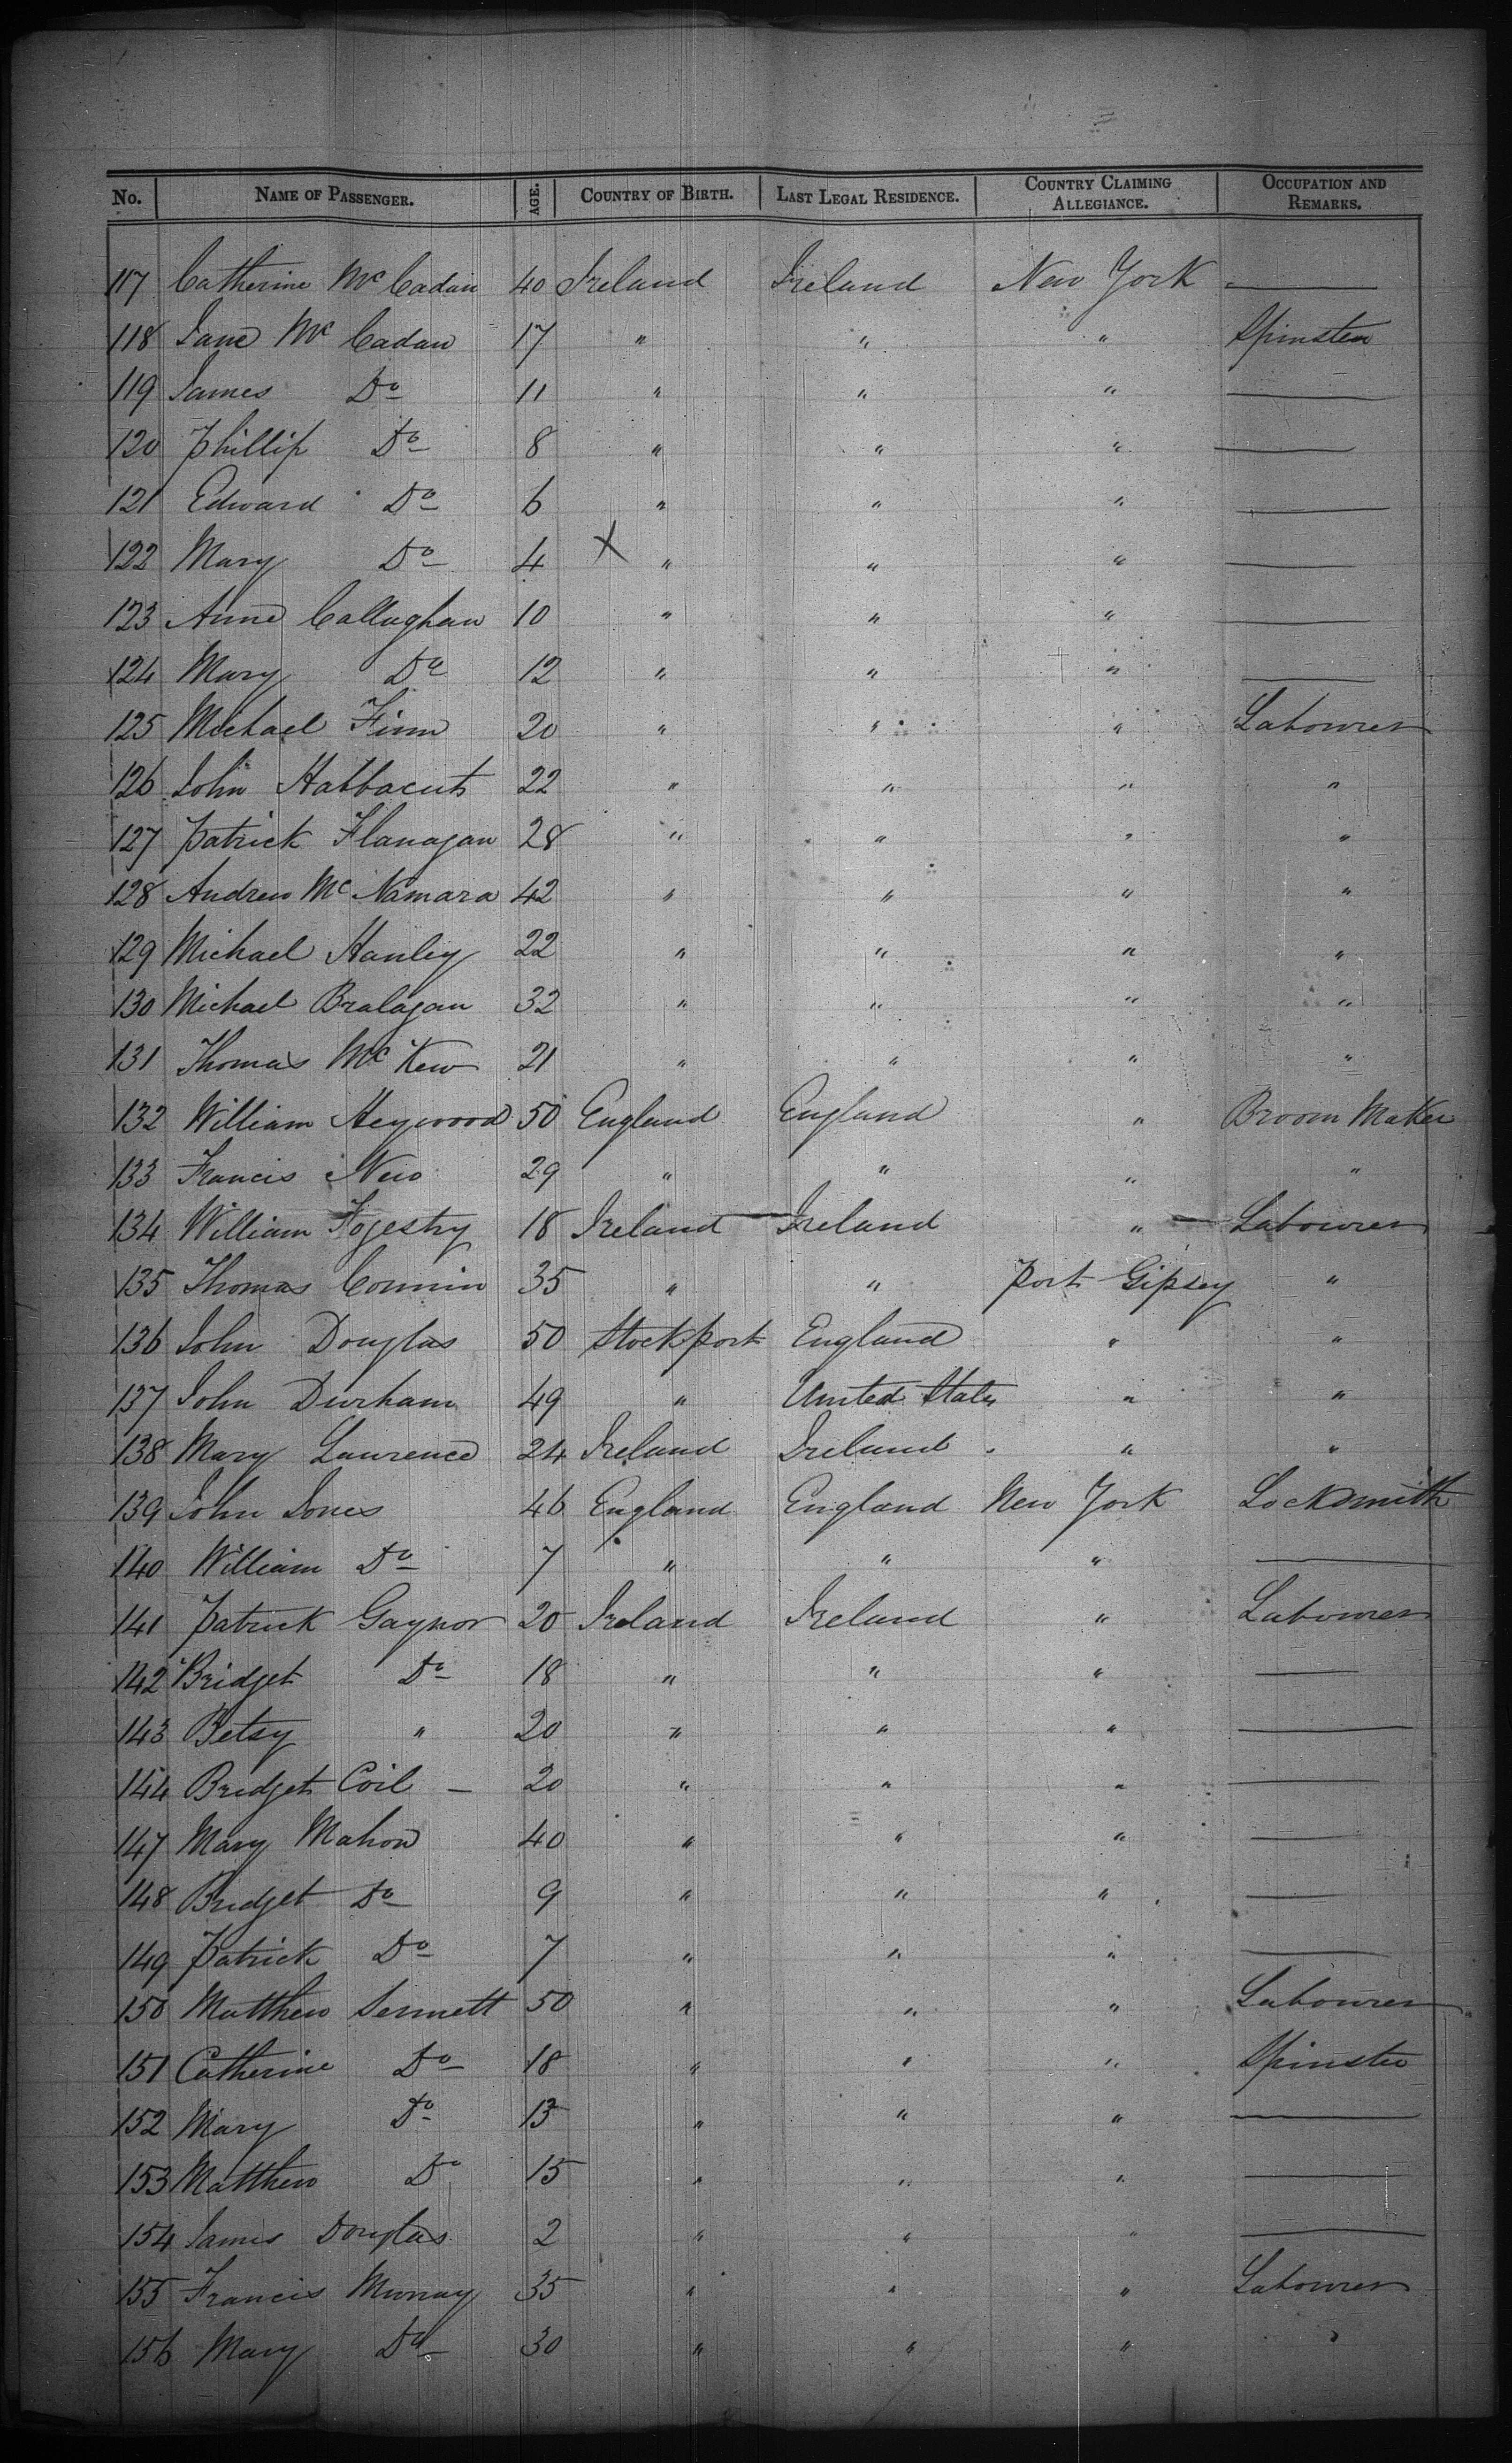 No. NAME OF PASSENGER. AGE. COUNTRY OF BIRTH. LAST LEGAL RESIDENCE. COUNTRY CLAIMING ALLEGIANCE. OCCUPATION AND REMARKS.
117 Catherine Mc Cadan 40 Ireland Ireland New York —
118 Jane Mc Cadan 17 " " " Spinster
119 James Do 11 " " " —
120 Phillip Do 8 " " " —
121 Edward Do 6 " " " —
122 Mary Do 4 X " " " —
123 Anne Callaghan 10 " " " —
124 Mary Do 12 " " " —
125 Michael Finn 20 " " " Labourer
126 John 22 " " " "
127 Patrick Flanagan 28 " " " "
128 Andrew Mc Namara 42 " " " "
129 Michael Hanley 22 " " " "
130 Michael Bralagan 32 " " " "
131 Thomas Mc Kew 21 " " " "
132 William Heywood 50 England England " Broom Maker
133 Francis New 29 " " " "
134 William 18 Ireland Ireland " Labourer
135 Thomas 35 " " Port Gipsey "
136 John Douglas 50 Stockport England " "
137 John Durham 49 " United States " "
138 Mary Lawrence 24 Ireland Ireland " "
139 John Jones 46 England England New York Locksmith
140 William Do 7 " " " —
141 Patrick Gaynor 20 Ireland Ireland " Labourer
142 Bridget Do 18 " " " —
143 Betsy " 20 " " " —
144 Bridget Coil — 20 " " " —
147 Mary Mahon 40 " " " —
148 Bridget Do 9 " " " —
149 Patrick Do 7 " " " —
150 Matthew Sennett 50 " " " Labourer
151 Catherine Do 18 " " " Spinster
152 Mary Do 13 " " " —
153 Matthew Do 15 " " " —
154 James Douglas 2 " " " —
155 Francis Murray 35 " " " Labourer
156 Mary Do 30 " " " "